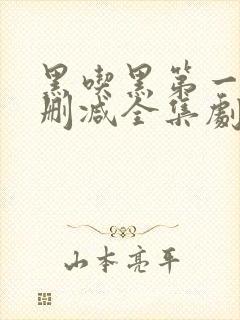 黑喫黑第一
删减全集劇
山本亮平